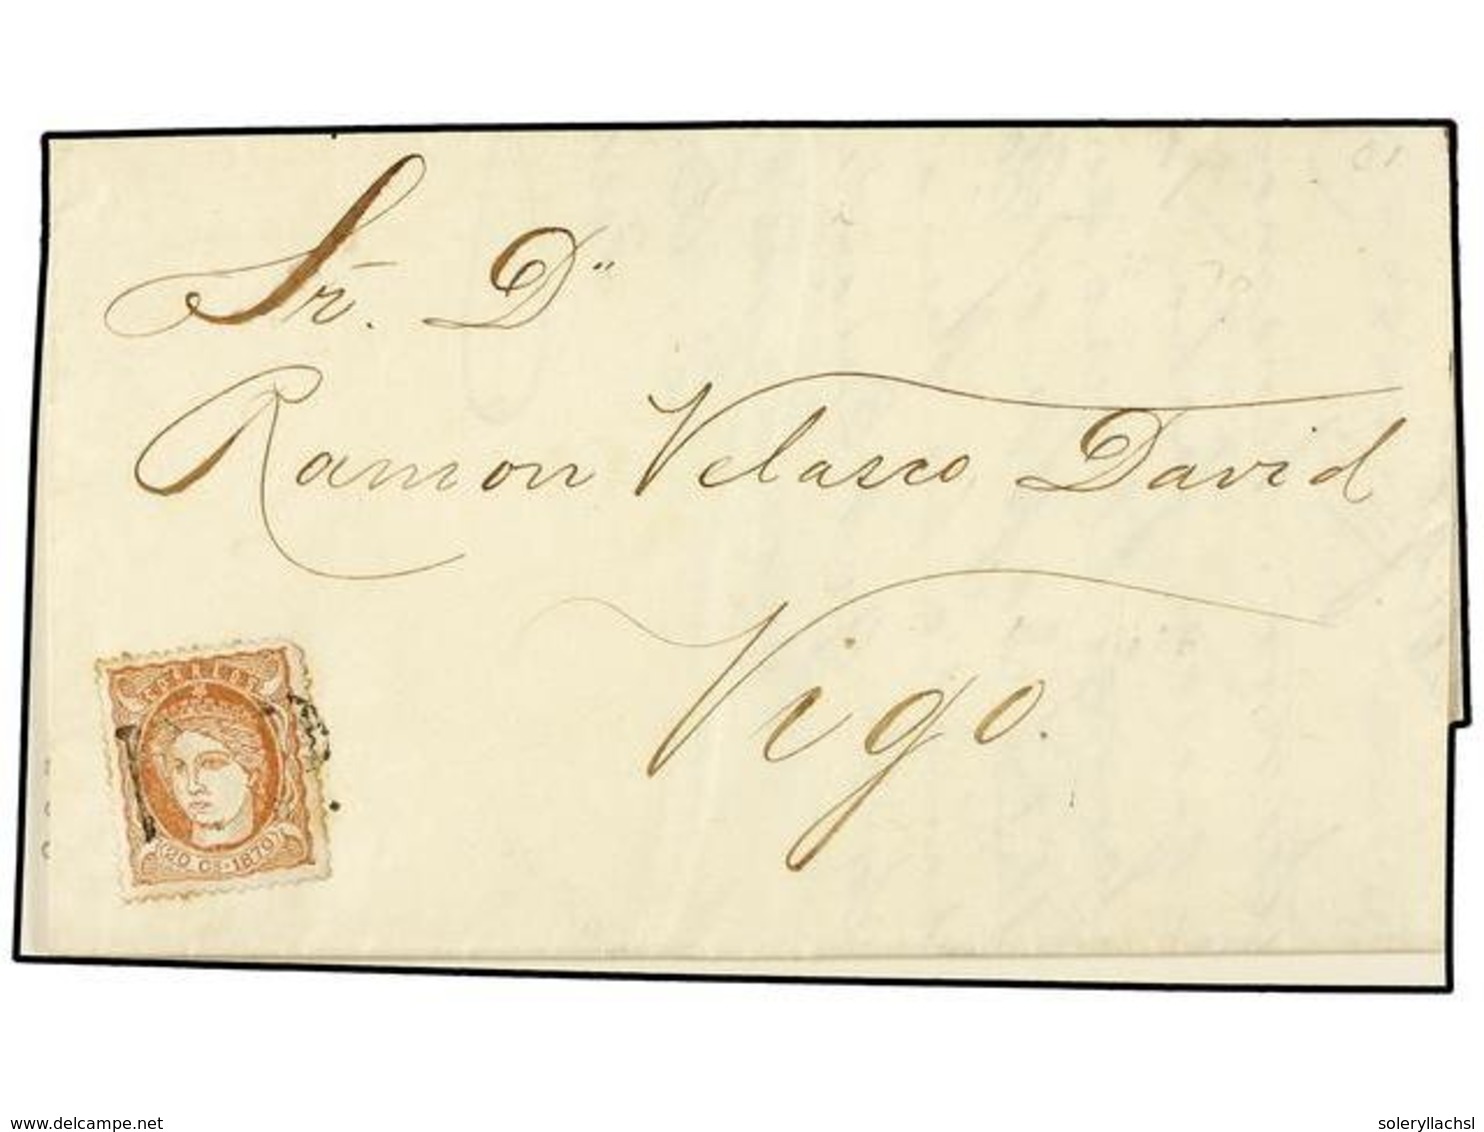 Sr. Dn
Ramon Velasco David
Vigo.
CORREOS
20 Cs. 1870
www.delcampe.net
soleryllachsl